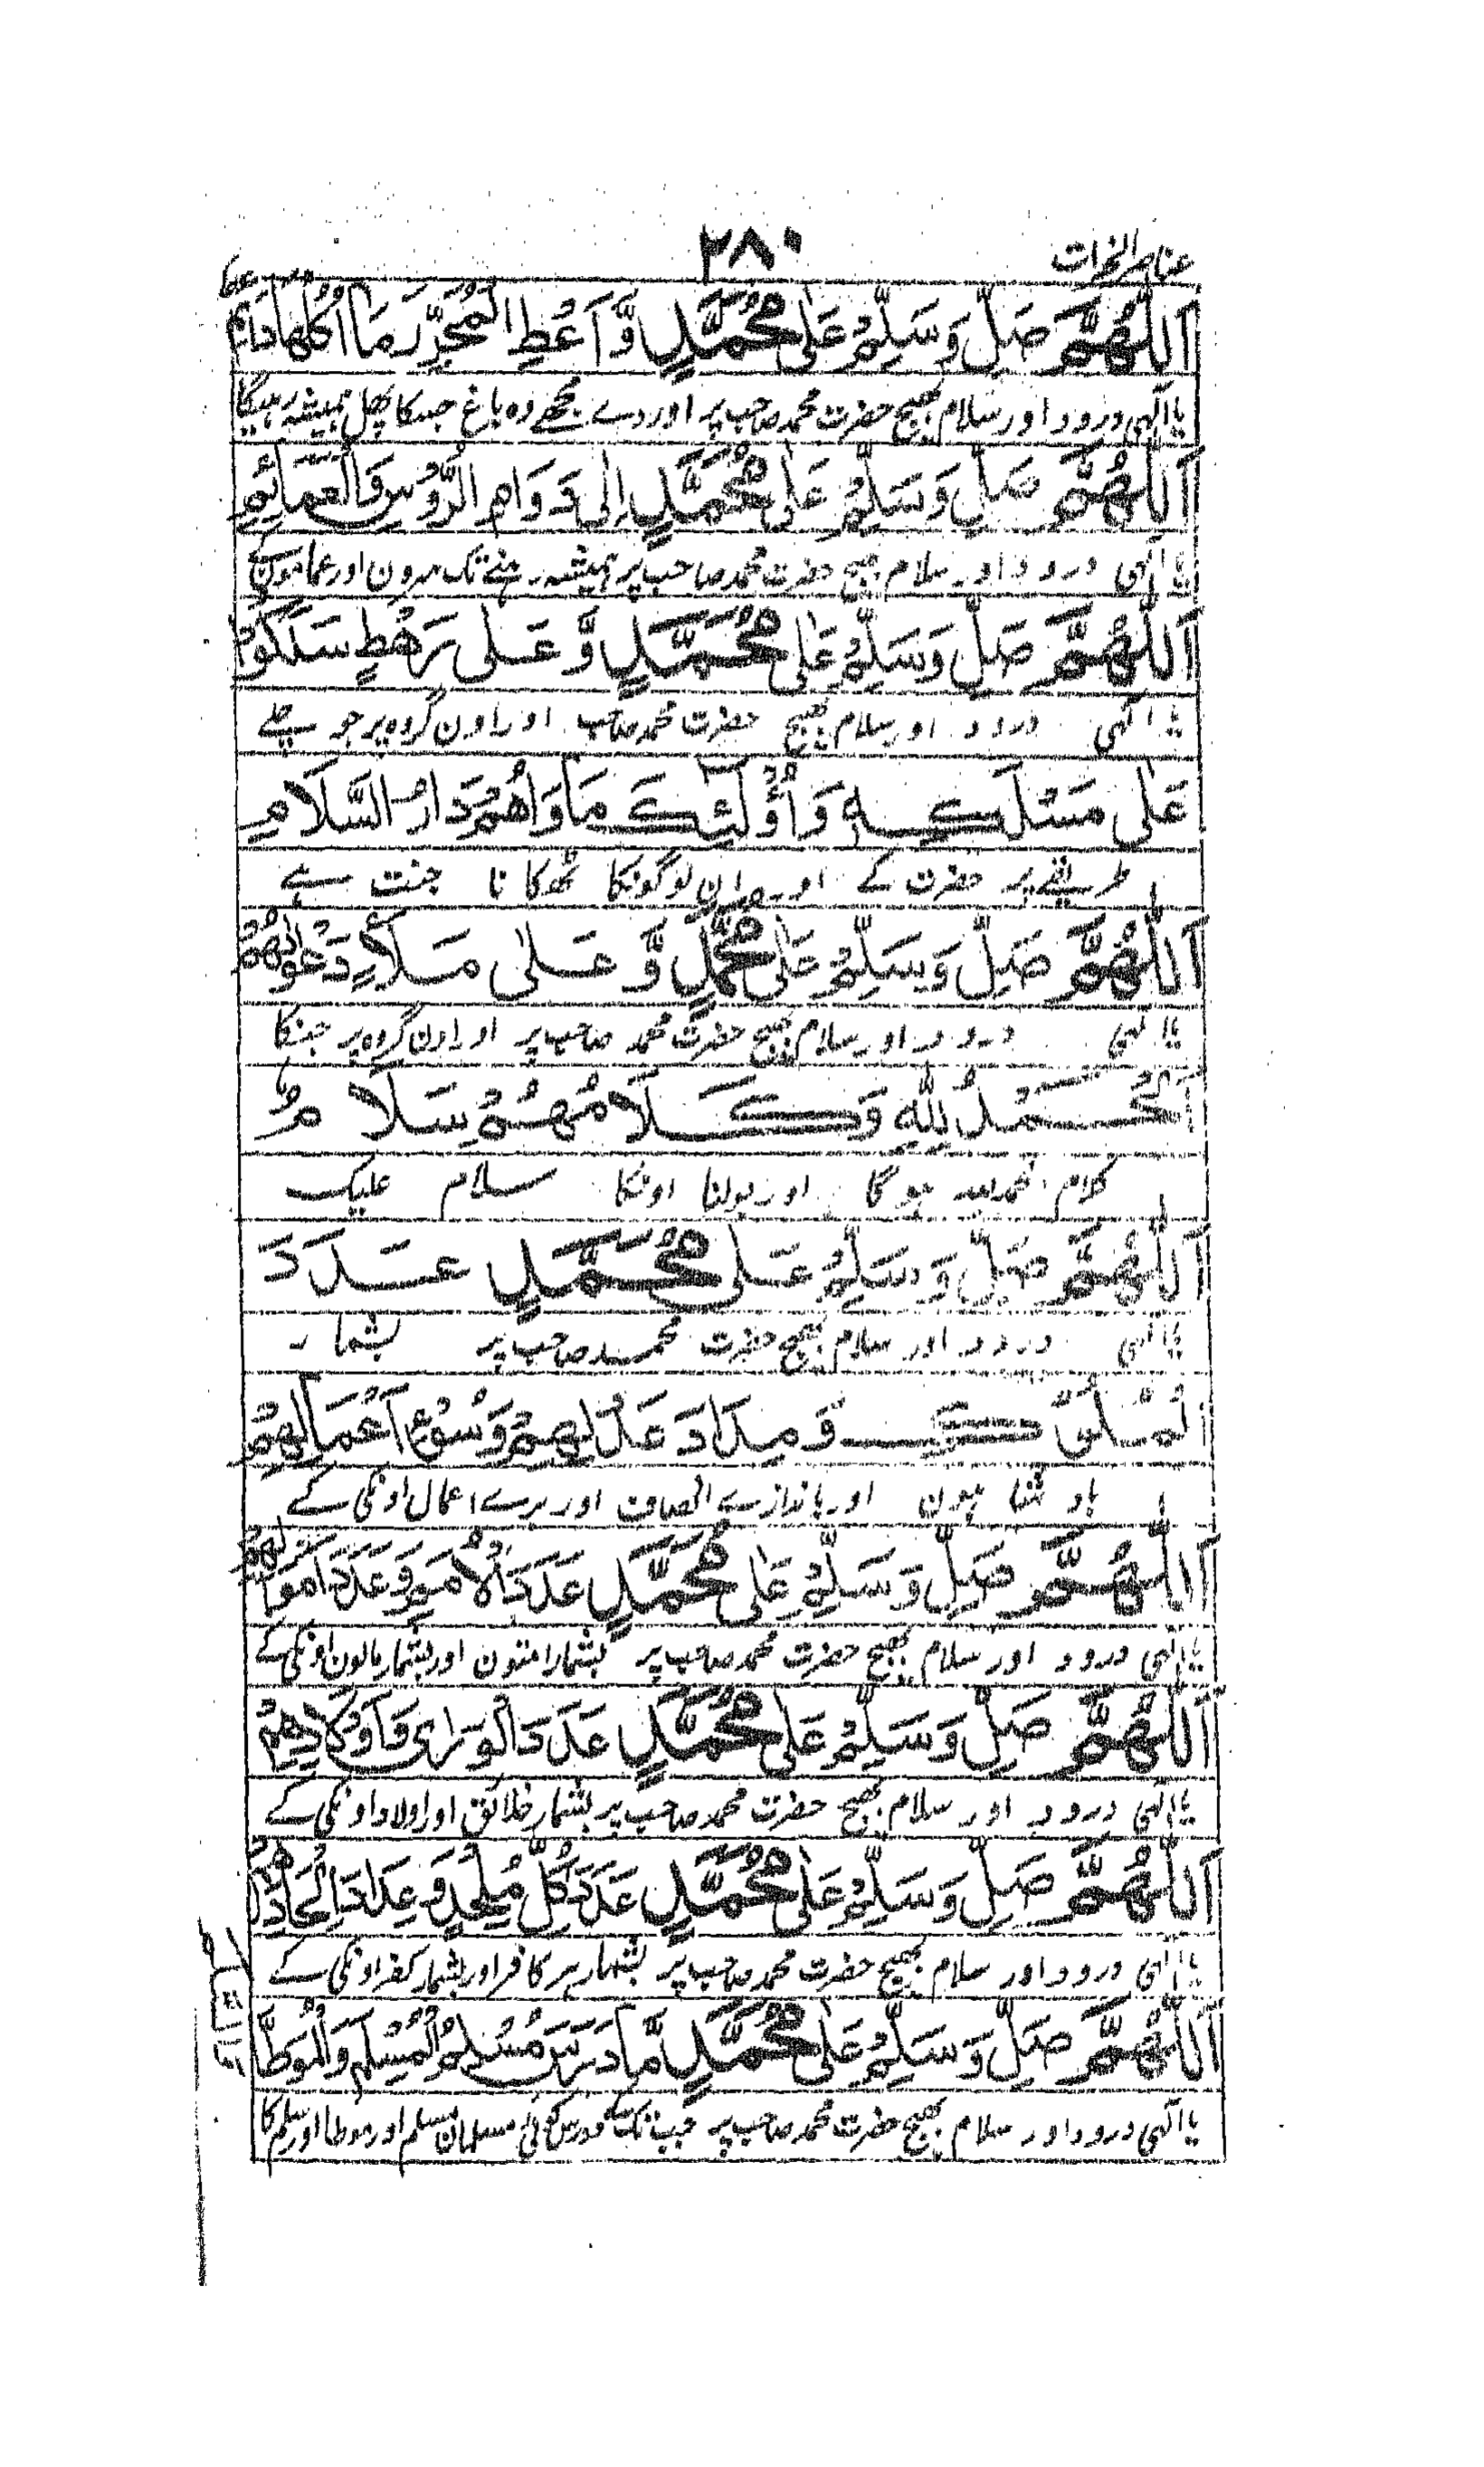 عناصر الخیرات
۲۸۰
اَللّٰهُمَّ صَلِّ وَسَلِّمْ عَلٰى مُحَمَّدٍ وَّاَعْطِ اُكُلُهَا دَائِمٌ
یا الہی درود اور سلام بھیج حضرت محمد صاحب پر اور دے مجھے وہ باغ جسکا پھل ہمیشہ رہیگا
اَللّٰهُمَّ صَلِّ وَسَلِّمْ عَلٰى مُحَمَّدٍ اِلٰى دَوَامِ الرُّؤُسِ وَالْعَمَائِمِ
یا الہی درود اور سلام بھیج حضرت محمد صاحب پر ہمیشہ رہنے تک سرون اور عمامون کے
اَللّٰهُمَّ صَلِّ وَسَلِّمْ عَلٰى مُحَمَّدٍ وَّعَلٰى رَهْطٍ سَلَكُوْا
یا الہی درود اور سلام بھیج حضرت محمد صاحب اور اون گروہ پر جو چلے
عَلٰى مَسْلَكِهٖ وَاُولٰٓئِكَ مَاْوَاهُمْ دَارُ السَّلَامِ
طریقے پر حضرت کے اور ان لوگونکا ٹھکانا جنت ہے
اَللّٰهُمَّ صَلِّ وَسَلِّمْ عَلٰى مُحَمَّدٍ وَّعَلٰى مَلَاٍ دَعْوٰىهُمْ
یا الہی درود اور سلام بھیج حضرت محمد صاحب پر اور اون گروہ پر جنکا
اَلْحَمْدُ لِلّٰهِ وَكَلَامُهُمْ سَلَامٌ
کلام الحمد للہ ہوگا اور بولنا اونکا سلام علیک
اَللّٰهُمَّ صَلِّ وَسَلِّمْ عَلٰى مُحَمَّدٍ عَدَدَ
یا الہی درود اور سلام بھیج حضرت محمد صاحب پر بشمار
الْمُلُوْكِ وَمِدَادَ عَدْلِهِمْ وَسُوْءِ اَعْمَالِهِمْ
بادشاہون اور باندازے انصاف اور برے اعمال اونکی کے
اَللّٰهُمَّ صَلِّ وَسَلِّمْ عَلٰى مُحَمَّدٍ عَدَدَ الْاُمَمِ وَعَدَدَ اَمْوَالِهِمْ
یا الہی درود اور سلام بھیج حضرت محمد صاحب پر بشمار امتون اور بشمار مالون اونکی کے
اَللّٰهُمَّ صَلِّ وَسَلِّمْ عَلٰى مُحَمَّدٍ عَدَدَ الْوَرٰى وَاَوْلَادِهِمْ
یا الہی درود اور سلام بھیج حضرت محمد صاحب پر بشمار خلائق اور اولاد اونکی کے
اَللّٰهُمَّ صَلِّ وَسَلِّمْ عَلٰى مُحَمَّدٍ عَدَدَ كُلِّ مُلْحِدٍ وَعِدَادَ اِلْحَادِهِمْ
یا الہی درود اور سلام بھیج حضرت محمد صاحب پر بشمار ہر کافر اور بشمار کفر اونکی کے
اَللّٰهُمَّ صَلِّ وَسَلِّمْ عَلٰى مُحَمَّدٍ مَّا دَرَسَ مُسْلِمٌ الْمُسْلِمَ وَالْمُوَطَّا
یا الہی درود اور سلام بھیج حضرت محمد صاحب پر جب تک کوئی مسلمان مسلم اور موطا اور